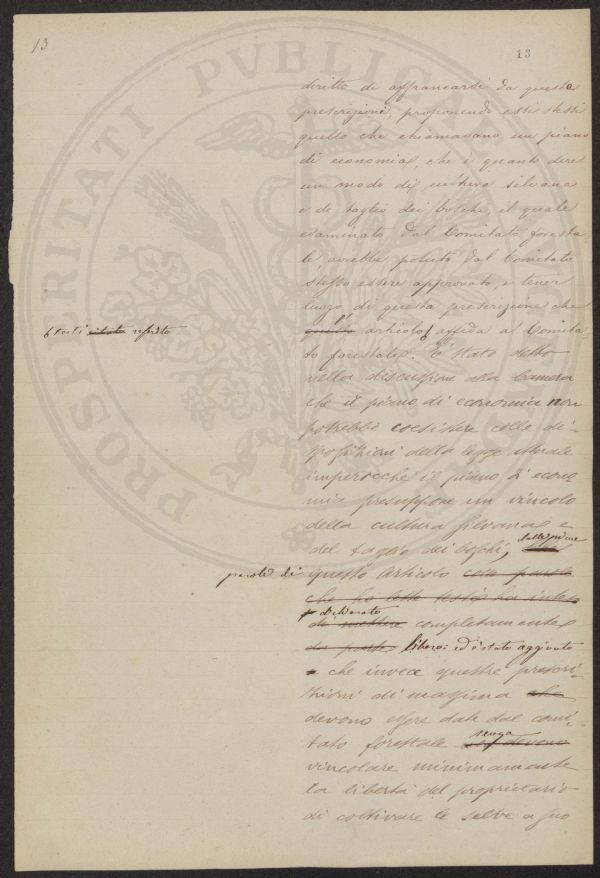 13
13
PROSPERITATI PVBLICAE
diritto di affrancarsi da queste
prescrizioni, proponendo essi stessi
quello che chiamavano un piano
di economia, che è quanto dire
un modo di cultura silvana
e di taglio dei boschi, il quale
esaminato dal Comitato foresta-
le avrebbe potuto dal Comitato
stesso essere approvato, e tener
luogo di queste prescrizioni che
articolo affida al Comita-
to forestale. È stato detto
nella discussione alla Camera
che il piano di economia non
potrebbe coesistere colle di-
sposizioni della legge attuale
imperocchè il piano di econo-
mia presuppone un vincolo
della cultura silvana e
del taglio dei boschi,
parole di questo articolo che parole
che ho lette testè ha inteso
dichiarato
di mettere completamente
da parte libero: ed è stato aggiunto
che invece queste prescri-
zioni di massima che
devono essere date dal comi-
tato forestale senza
vincolare minimamente
la libertà del proprietario
di coltivare le selve a suo